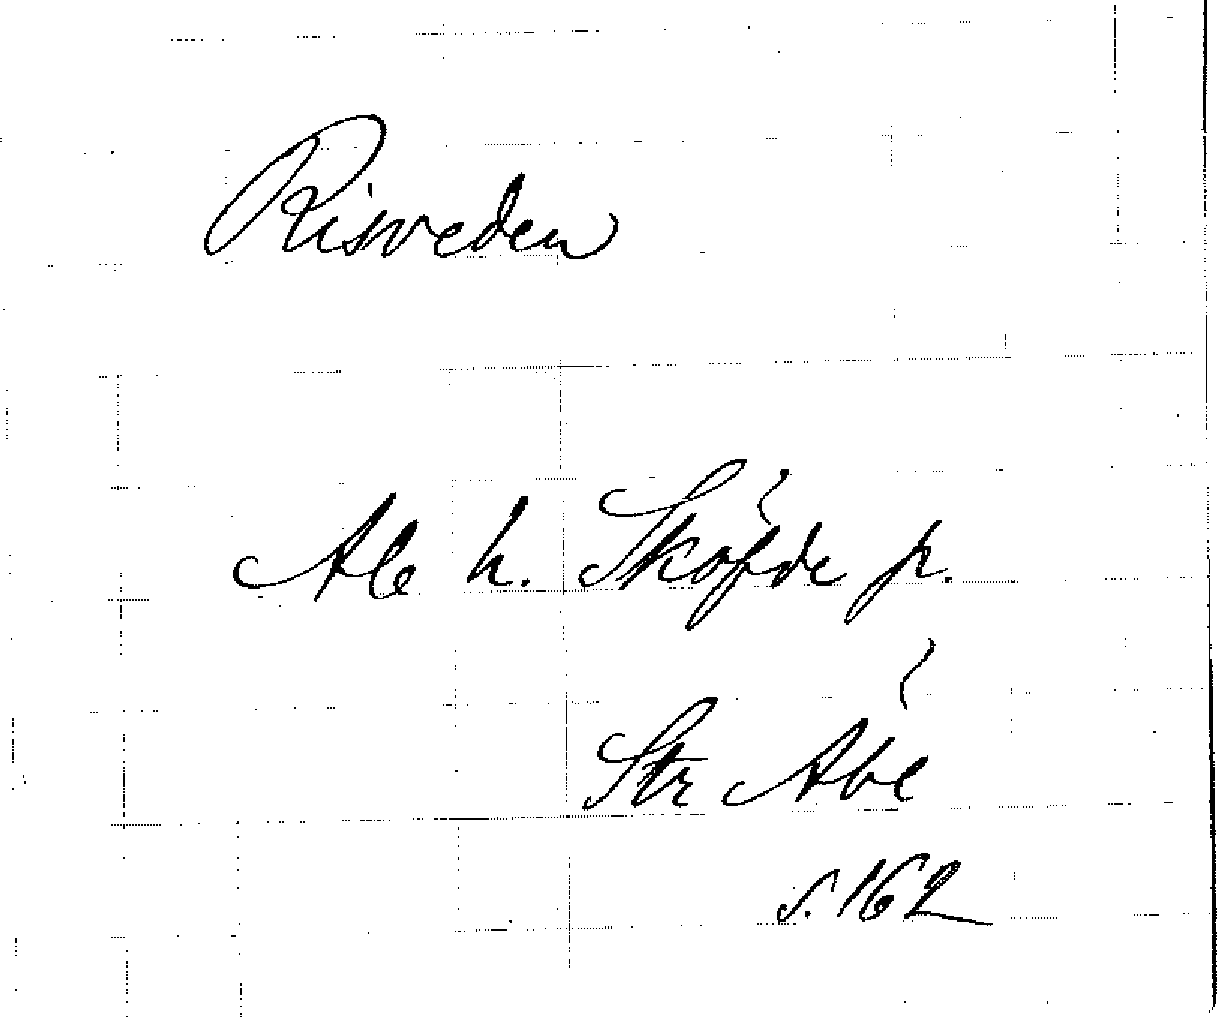 Risveden
Ale h. Sköfde p.
Str Abe
s. 162